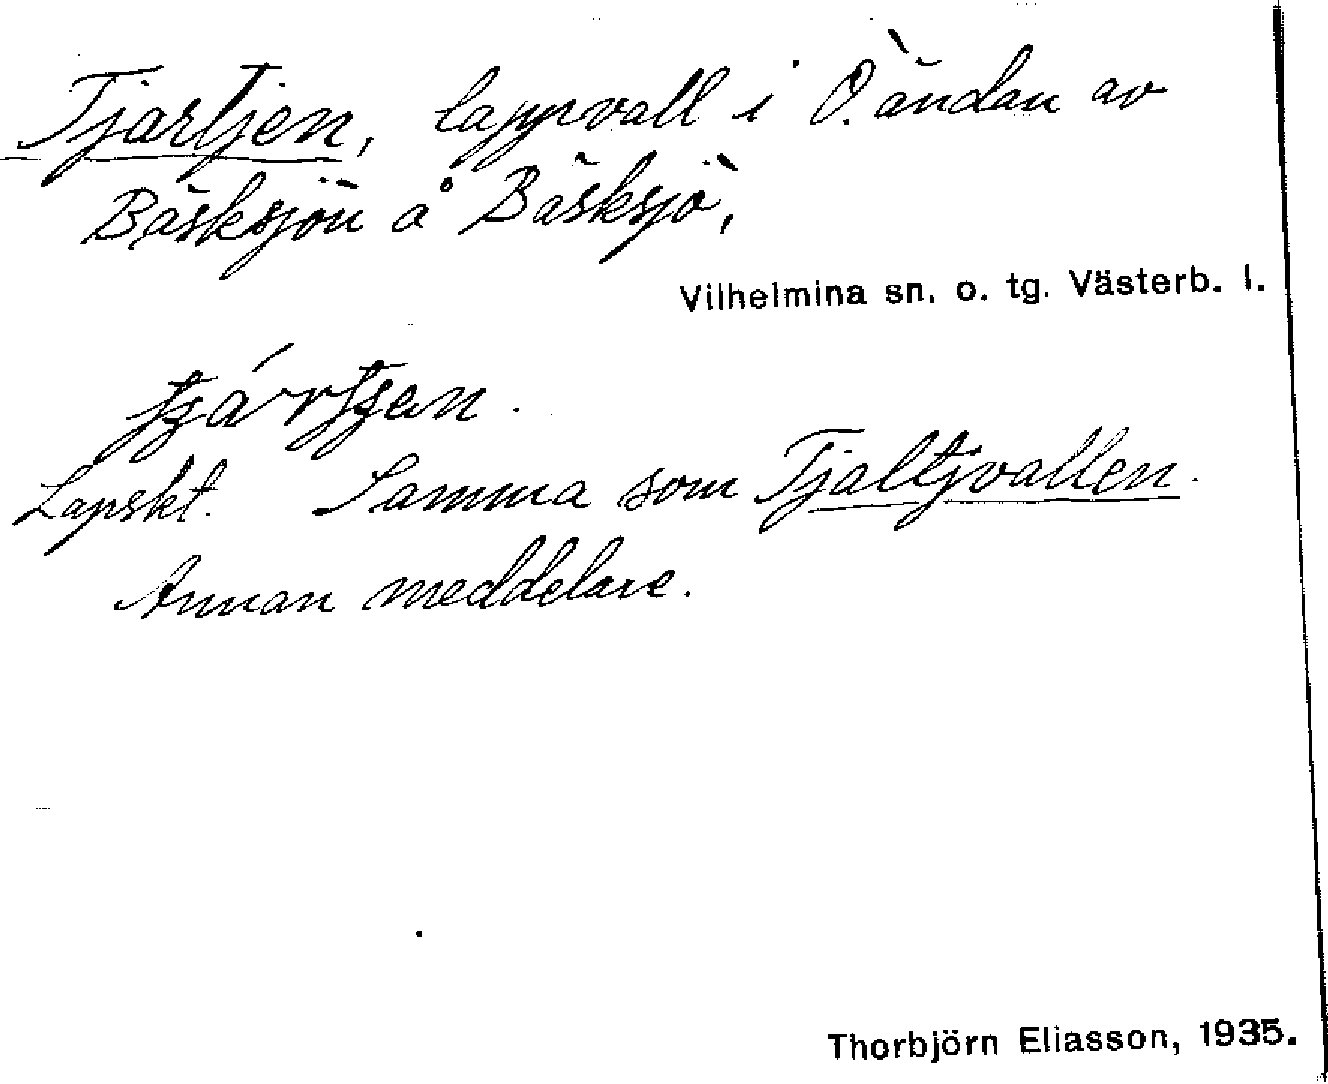 Tjartjen, lappvall i Ö. ändan av
Bäsksjön å Bäsksjö,
Vilhelmina sn. o. tg. Västerb. l.
tjártjen.
Lapskt. Samma som Tjaltjvallen.
Annan meddelare.
Thorbjörn Eliasson, 1935.